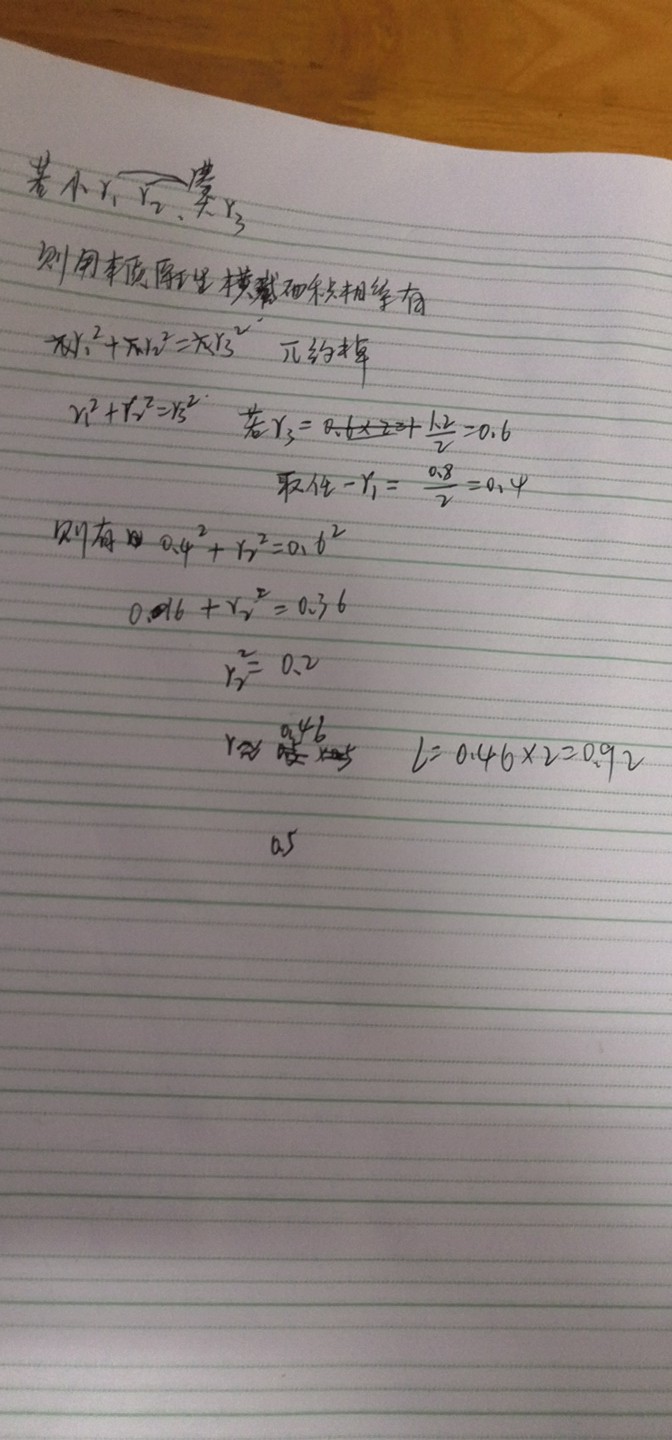 若小r₁ r₂、类r₃
则用本质原理横截面积相等有
πr₁²+πr₂²=πr₃² π约掉
r₁²+r₂²=r₃² 若r₃= 0.6×2=+ 1.2/2 =0.6
取任一r₁= 0.8/2 =0.4
则有 0.4²+r₂²=0.6²
0.16+r₂²=0.36
r₂²=0.2
r≈ 0.46 L=0.46×2=0.92
0.5